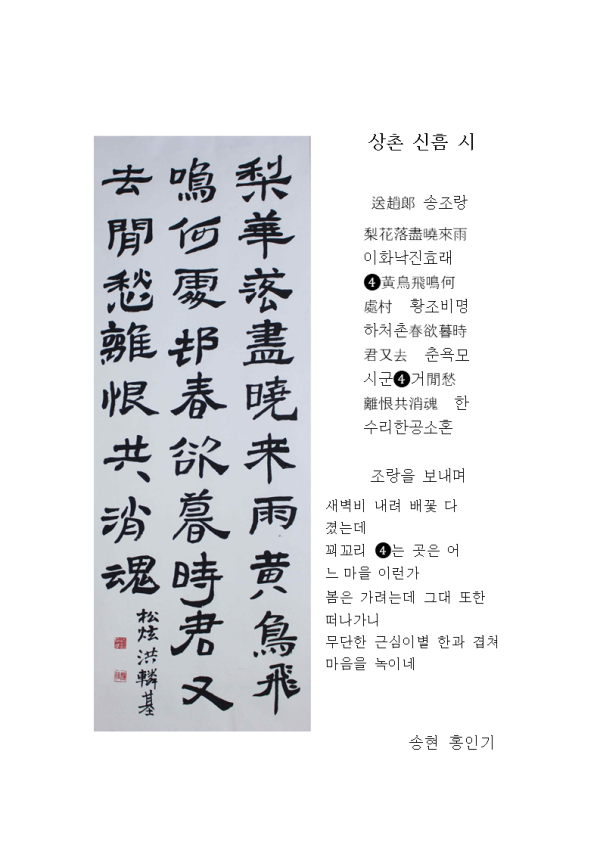 상촌 신흠 시
梨華落盡曉来雨黄鳥飛
鳴何處邨春欲暮時君又
去閒愁離恨共消魂
松炫洪轔基
送趙郞 송조랑
梨花落盡曉來雨
이화낙진효래
❹黃鳥飛鳴何
處村 황조비명
하처촌春欲暮時
君又去 춘욕모
시군❹거閒愁
離恨共消魂 한
수리한공소혼
조랑을 보내며
새벽비 내려 배꽃 다
졌는데
꾀꼬리 ❹는 곳은 어
느 마을 이런가
봄은 가려는데 그대 또한
떠나가니
무단한 근심이별 한과 겹쳐
마음을 녹이네
송현 홍인기